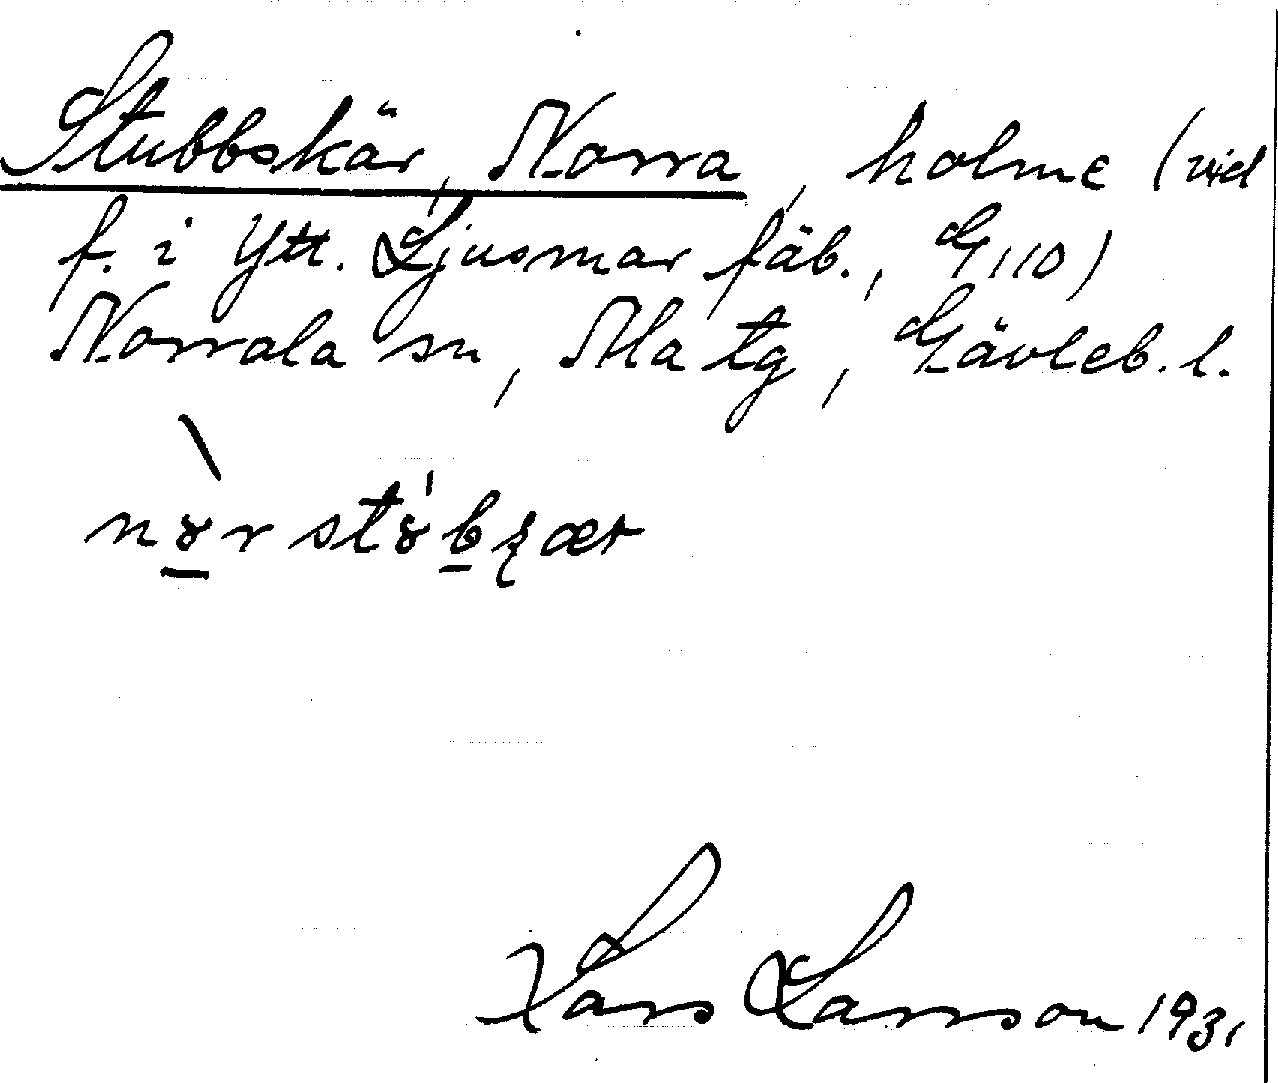 Stubbskär, Norra, holme (vid
f. i Ytt. Ljusmar fäb., G,110)
Norrala sn, Ala tg, Gävleb. l.
Lars Larsson 1931